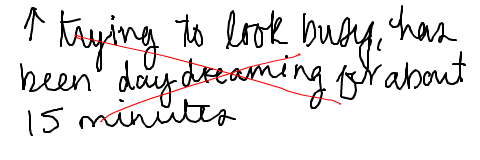 ↑ trying to look busy, has
been daydreaming for about
15 minutes